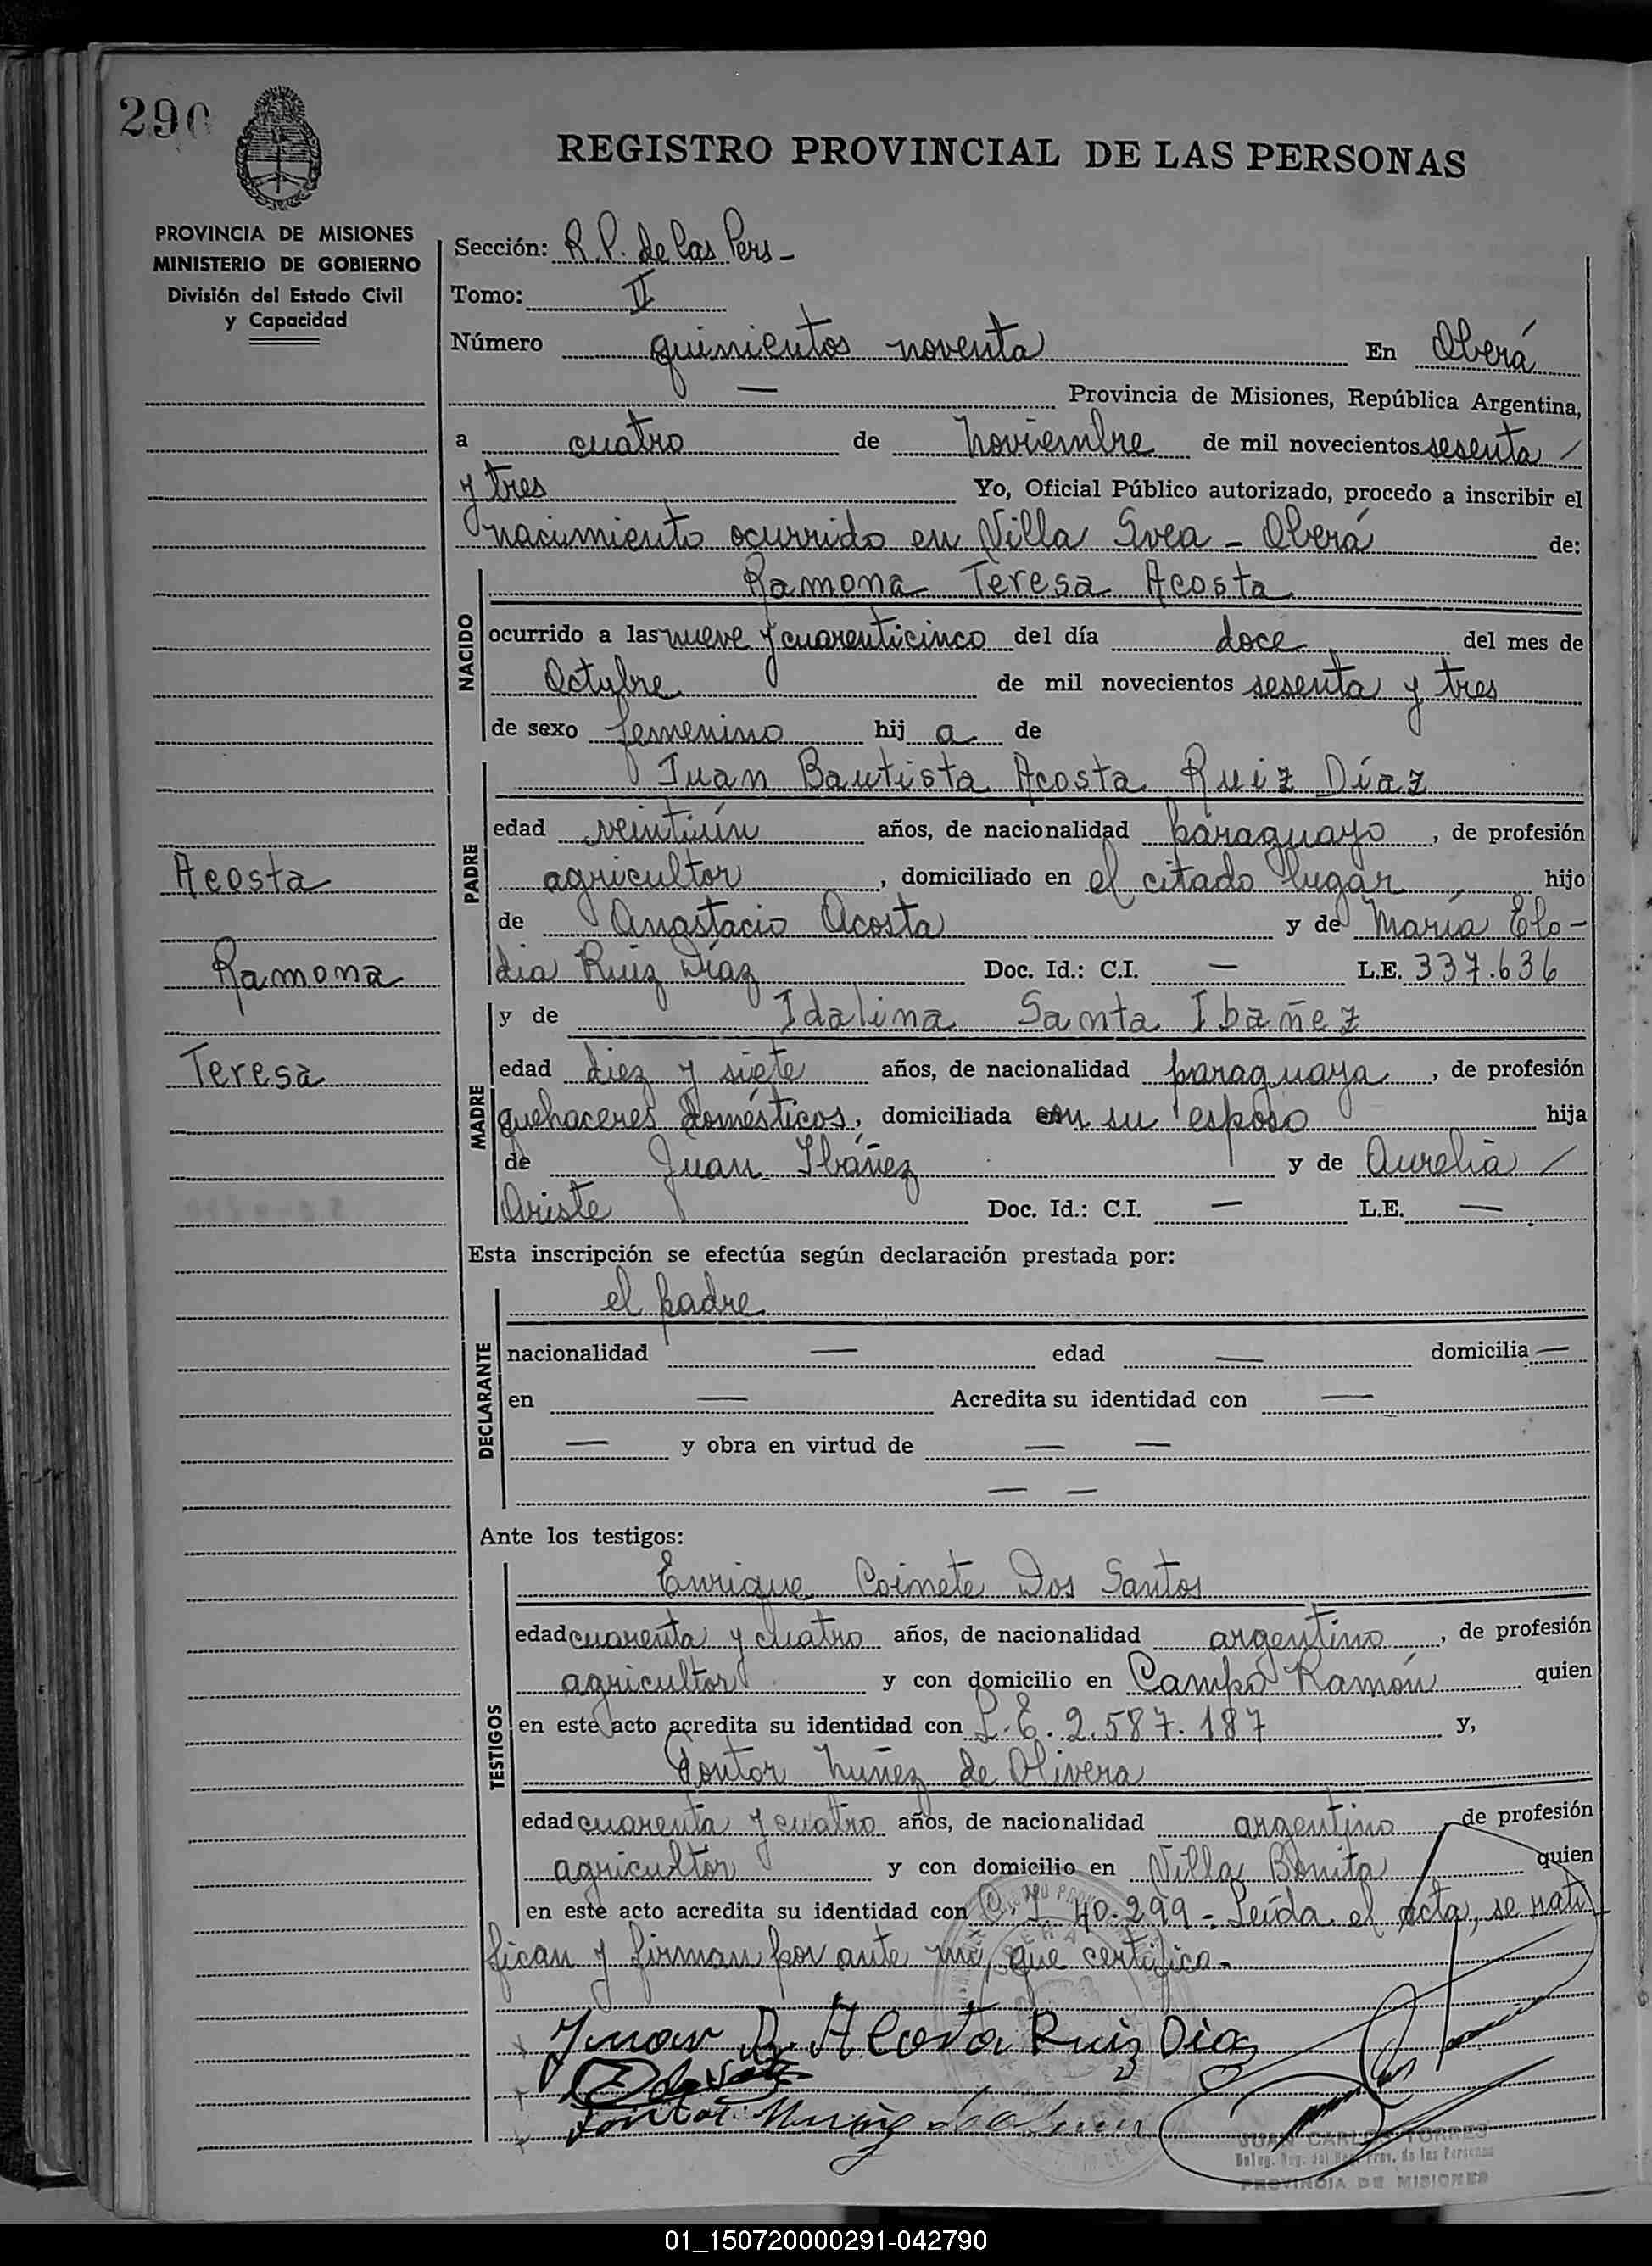 290
REGISTRO PROVINCIAL DE LAS PERSONAS
PROVINCIA DE MISIONES
MINISTERIO DE GOBIERNO
División del Estado Civil
y Capacidad
Sección: R.P. de las Pers -
Tomo: II
Número quinientos noventa En Oberá
— Provincia de Misiones, República Argentina,
a cuatro de Noviembre de mil novecientos sesenta /
y tres Yo, Oficial Público autorizado, procedo a inscribir el
nacimiento ocurrido en Villa Svea - Oberá de:
NACIDO
Ramona Teresa Acosta
ocurrido a las nueve y cuarenticinco del día doce del mes de
Octubre de mil novecientos sesenta y tres
de sexo femenino hij a de
PADRE
Juan Bautista Acosta Ruiz Díaz
edad veintiún años, de nacionalidad paraguayo, de profesión
agricultor, domiciliado en el citado lugar, hijo
de Anastacio Acosta y de María Elo-
dia Ruiz Díaz Doc. Id.: C.I. — L.E. 337.636
Acosta
Ramona
Teresa
MADRE
y de Idalina Santa Ibañez
edad diez y siete años, de nacionalidad paraguaya, de profesión
quehaceres domésticos, domiciliada con su esposo hija
de Juan Ibáñez y de Aurelia /
Ariste Doc. Id.: C.I. — L.E. —
Esta inscripción se efectúa según declaración prestada por:
DECLARANTE
el padre
nacionalidad — edad — domicilia —
en — Acredita su identidad con —
— y obra en virtud de — —
— —
Ante los testigos:
TESTIGOS
Enrique Coimete Dos Santos
edad cuarenta y cuatro años, de nacionalidad argentino, de profesión
agricultor y con domicilio en Campo Ramón quien
en este acto acredita su identidad con L.E. 2.587.187 y,
Doutor Nuñez de Olivera
edad cuarenta y cuatro años, de nacionalidad argentino, de profesión
agricultor y con domicilio en Villa Bonita quien
en este acto acredita su identidad con C.I. 40.299 - Leída el acta, se rati
fican y firman por ante mí, que certifico -
Juan B. Acosta Ruiz Dia
JUAN CARLOS TORRES
PROVINCIA DE MISIONES
01_150720000291-042790